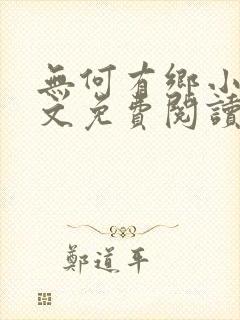 無何有鄉小
文免費閱讀
鄭道平